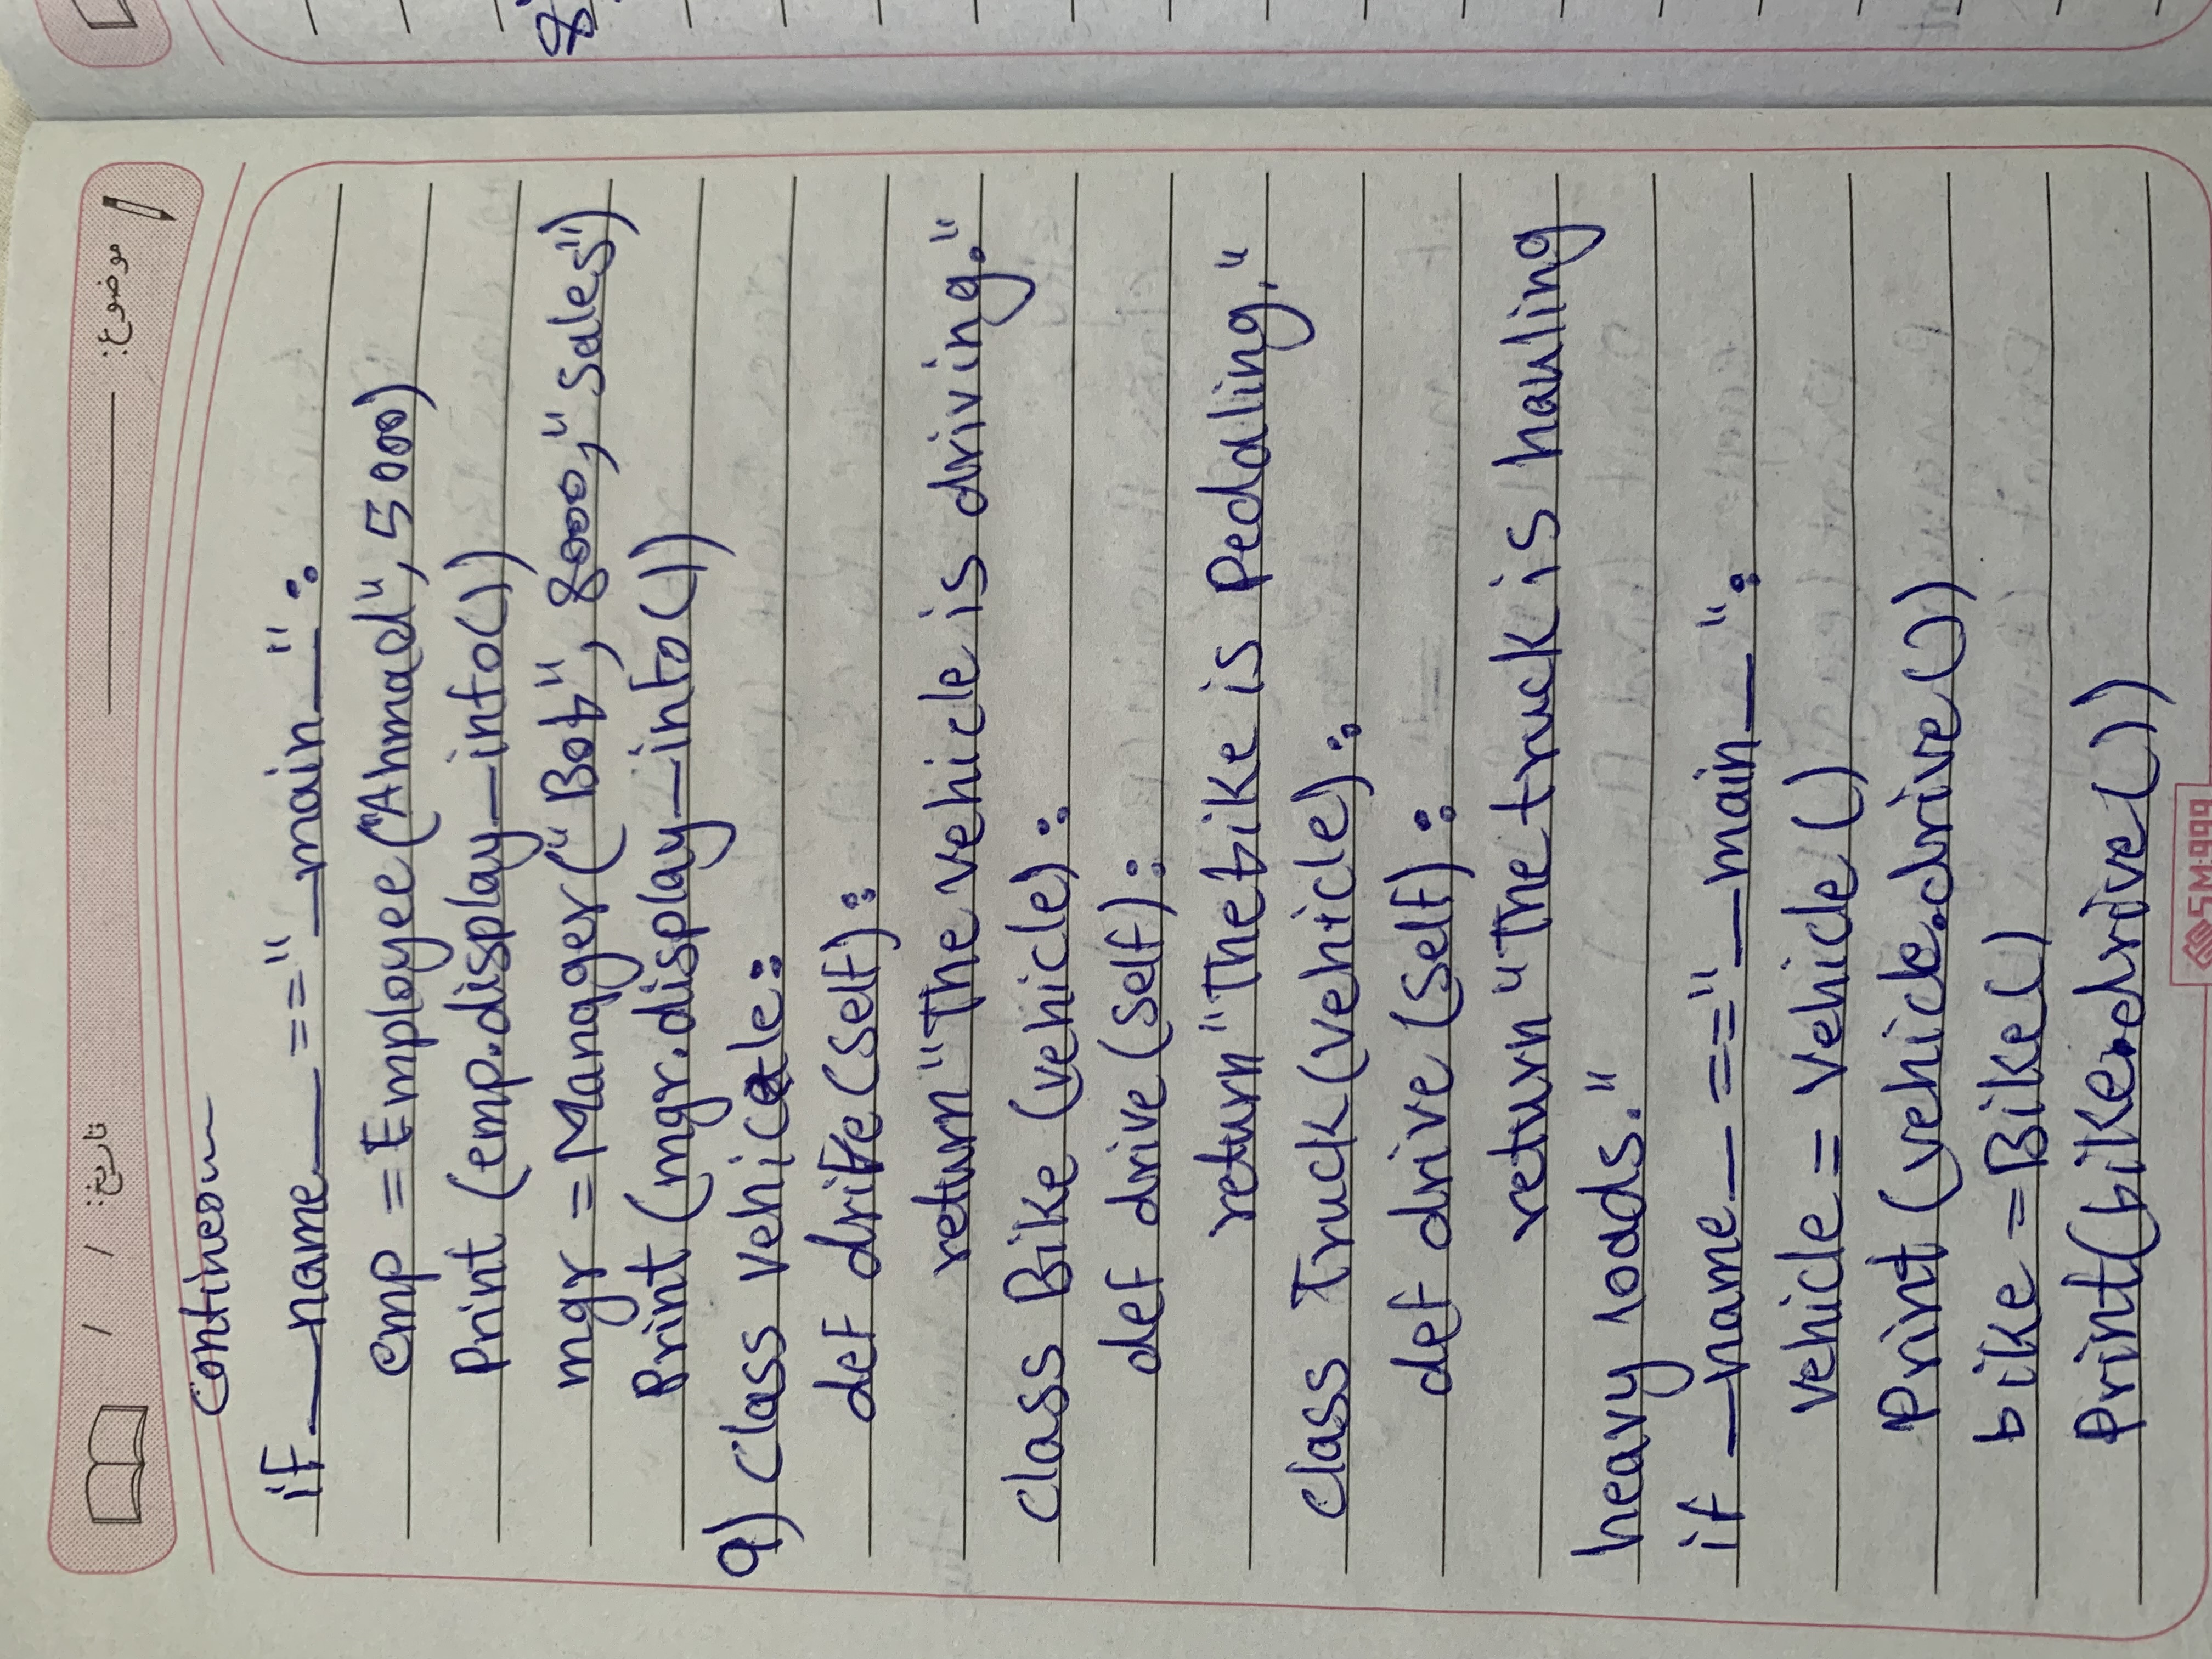 موضوع: تاریخ: / /
contineou
if __name__ =="__main__":
emp = Employee("Ahmad", 5000)
Print (emp.display_info())
mgr = Manager("Bob", 8000, "Sales")
Print (mgr.display_info())
9) class vehicle:
def drive(self):
return "The vehicle is driving."
class Bike (vehicle):
def drive (self):
return "The bike is Pedaling."
class Truck (vehicle):
def drive (self):
return "The truck is hauling
heavy loads."
if __name__ =="__main__":
vehicle = Vehicle ()
Print (vehicle.drive ())
bike = Bike()
Print(bike.drive())
SM:999
8